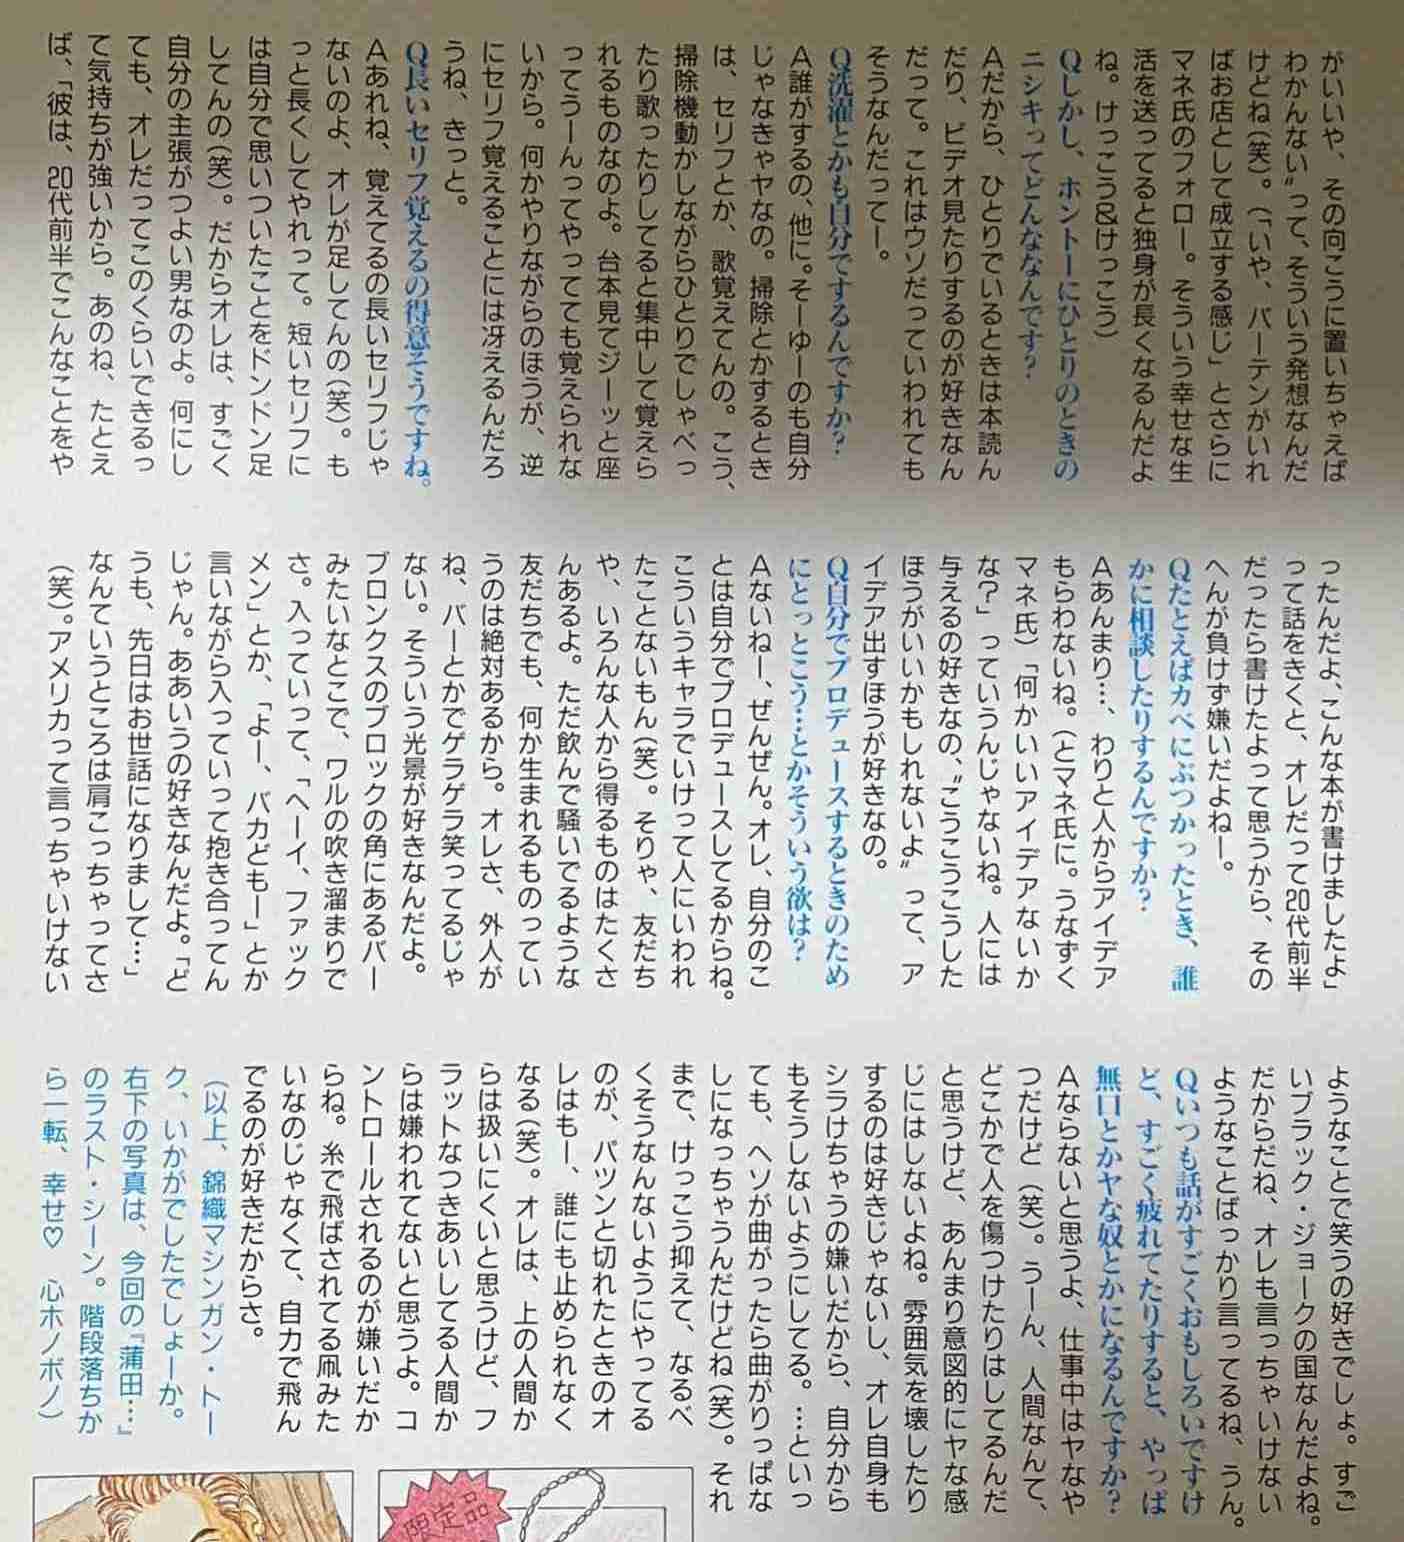 がいいや、その向こうに置いちゃえば
わかんない〟って、そういう発想なんだ
けどね(笑)。(「いや、バーテンがいれ
ばお店として成立する感じ」とさらに
マネ氏のフォロー。そういう幸せな生
活を送ってると独身が長くなるんだよ
ね。けっこう&けっこう)
Qしかし、ホントーにひとりのときの
ニシキってどんななんです?
Aだから、ひとりでいるときは本読ん
だり、ビデオ見たりするのが好きなん
だって。これはウソだっていわれても
そうなんだってー。
Q洗濯とかも自分でするんですか?
A誰がするの、他に。そーゆーのも自分
じゃなきゃヤなの。掃除とかするとき
は、セリフとか、歌覚えてんの。こう、
掃除機動かしながらひとりでしゃべっ
たり歌ったりしてると集中して覚えら
れるものなのよ。台本見てジーッと座
ってうーんってやってても覚えられな
いから。何かやりながらのほうが、逆
にセリフ覚えることには冴えるんだろ
うね、きっと。
Q長いセリフ覚えるの得意そうですね。
Aあれね、覚えてるの長いセリフじゃ
ないのよ、オレが足してんの(笑)。も
っと長くしてやれって。短いセリフに
は自分で思いついたことをドンドン足
してんの(笑)。だからオレは、すごく
自分の主張がつよい男なのよ。何にし
ても、オレだってこのくらいできるっ
て気持ちが強いから。あのね、たとえ
ば、「彼は、20代前半でこんなことをや
ったんだよ、こんな本が書けましたよ」
って話をきくと、オレだって20代前半
だったら書けたよって思うから、その
へんが負けず嫌いだよねー。
Qたとえばカベにぶつかったとき、誰
かに相談したりするんですか?
Aあんまり…、わりと人からアイデア
もらわないね。(とマネ氏に。うなずく
マネ氏)「何かいいアイデアないか
な?」っていうんじゃないね。人には
与えるの好きなの、〝こうこうこうした
ほうがいいかもしれないよ〟って、ア
イデア出すほうが好きなの。
Q自分でプロデュースするときのため
にとっとこう…とかそういう欲は?
Aないねー、ぜんぜん。オレ、自分のこ
とは自分でプロデュースしてるからね。
こういうキャラでいけって人にいわれ
たことないもん(笑)。そりゃ、友だち
や、いろんな人から得るものはたくさ
んあるよ。ただ飲んで騒いでるような
友だちでも、何か生まれるものってい
うのは絶対あるから。オレさ、外人が
ね、バーとかでゲラゲラ笑ってるじゃ
ない。そういう光景が好きなんだよ。
ブロンクスのブロックの角にあるバー
みたいなとこで、ワルの吹き溜まりで
さ。入っていって、「ヘーイ、ファック
メン」とか、「よー、バカどもー」とか
言いながら入っていって抱き合ってん
じゃん。ああいうの好きなんだよ。「ど
うも、先日はお世話になりまして…」
なんていうところは肩こっちゃってさ
(笑)。アメリカって言っちゃいけない
ようなことで笑うの好きでしょ。すご
いブラック・ジョークの国なんだよね。
だからだね、オレも言っちゃいけない
ようなことばっかり言ってるね、うん。
Qいつも話がすごくおもしろいですけ
ど、すごく疲れてたりすると、やっぱ
無口とかヤな奴とかになるんですか?
Aならないと思うよ、仕事中はヤなや
つだけど(笑)。うーん、人間なんて、
どこかで人を傷つけたりはしてるんだ
と思うけど、あんまり意図的にヤな感
じにはしないよね。雰囲気を壊したり
するのは好きじゃないし、オレ自身も
シラけちゃうの嫌いだから、自分から
もそうしないようにしてる。…といっ
ても、ヘソが曲がったら曲がりっぱな
しになっちゃうんだけどね(笑)。それ
まで、けっこう抑えて、なるべ
くそうなんないようにやってる
のが、パツンと切れたときのオ
レはもー、誰にも止められなく
なる(笑)。オレは、上の人間か
らは扱いにくいと思うけど、フ
ラットなつきあいしてる人間か
らは嫌われてないと思うよ。コ
ントロールされるのが嫌いだか
らね。糸で飛ばされてる凧みた
いなのじゃなくて、自力で飛ん
でるのが好きだからさ。
(以上、錦織マシンガン・トー
ク、いかがでしたでしょーか。
右下の写真は、今回の『蒲田…』
のラスト・シーン。階段落ちか
ら一転、幸せ♡ 心ホノボノ)
限定品